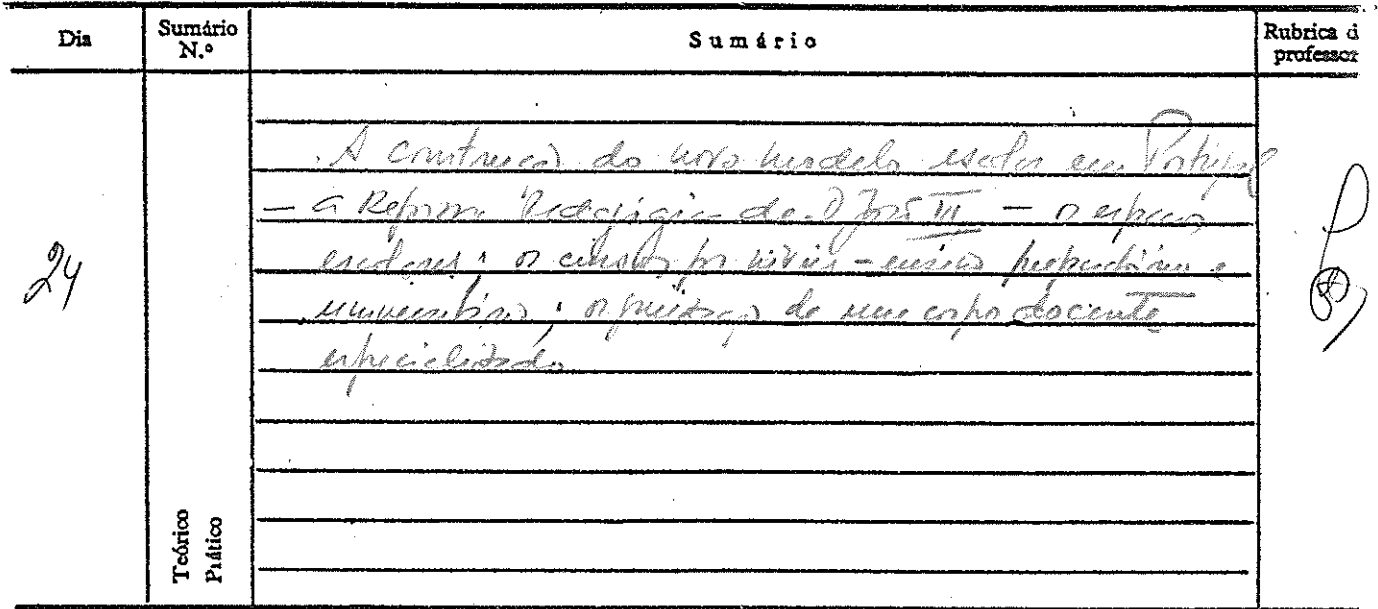 Dia
Sumário N.º
Sumário
Rubrica d
professor
24
. A construção do novo modelo escolar em Portugal
– a Reforma Pedagógica de D. João III – os espaços
escolares; os por níveis – ensino preparatório e
universitário; organização de um corpo docente
especializado
Teórico
Prático